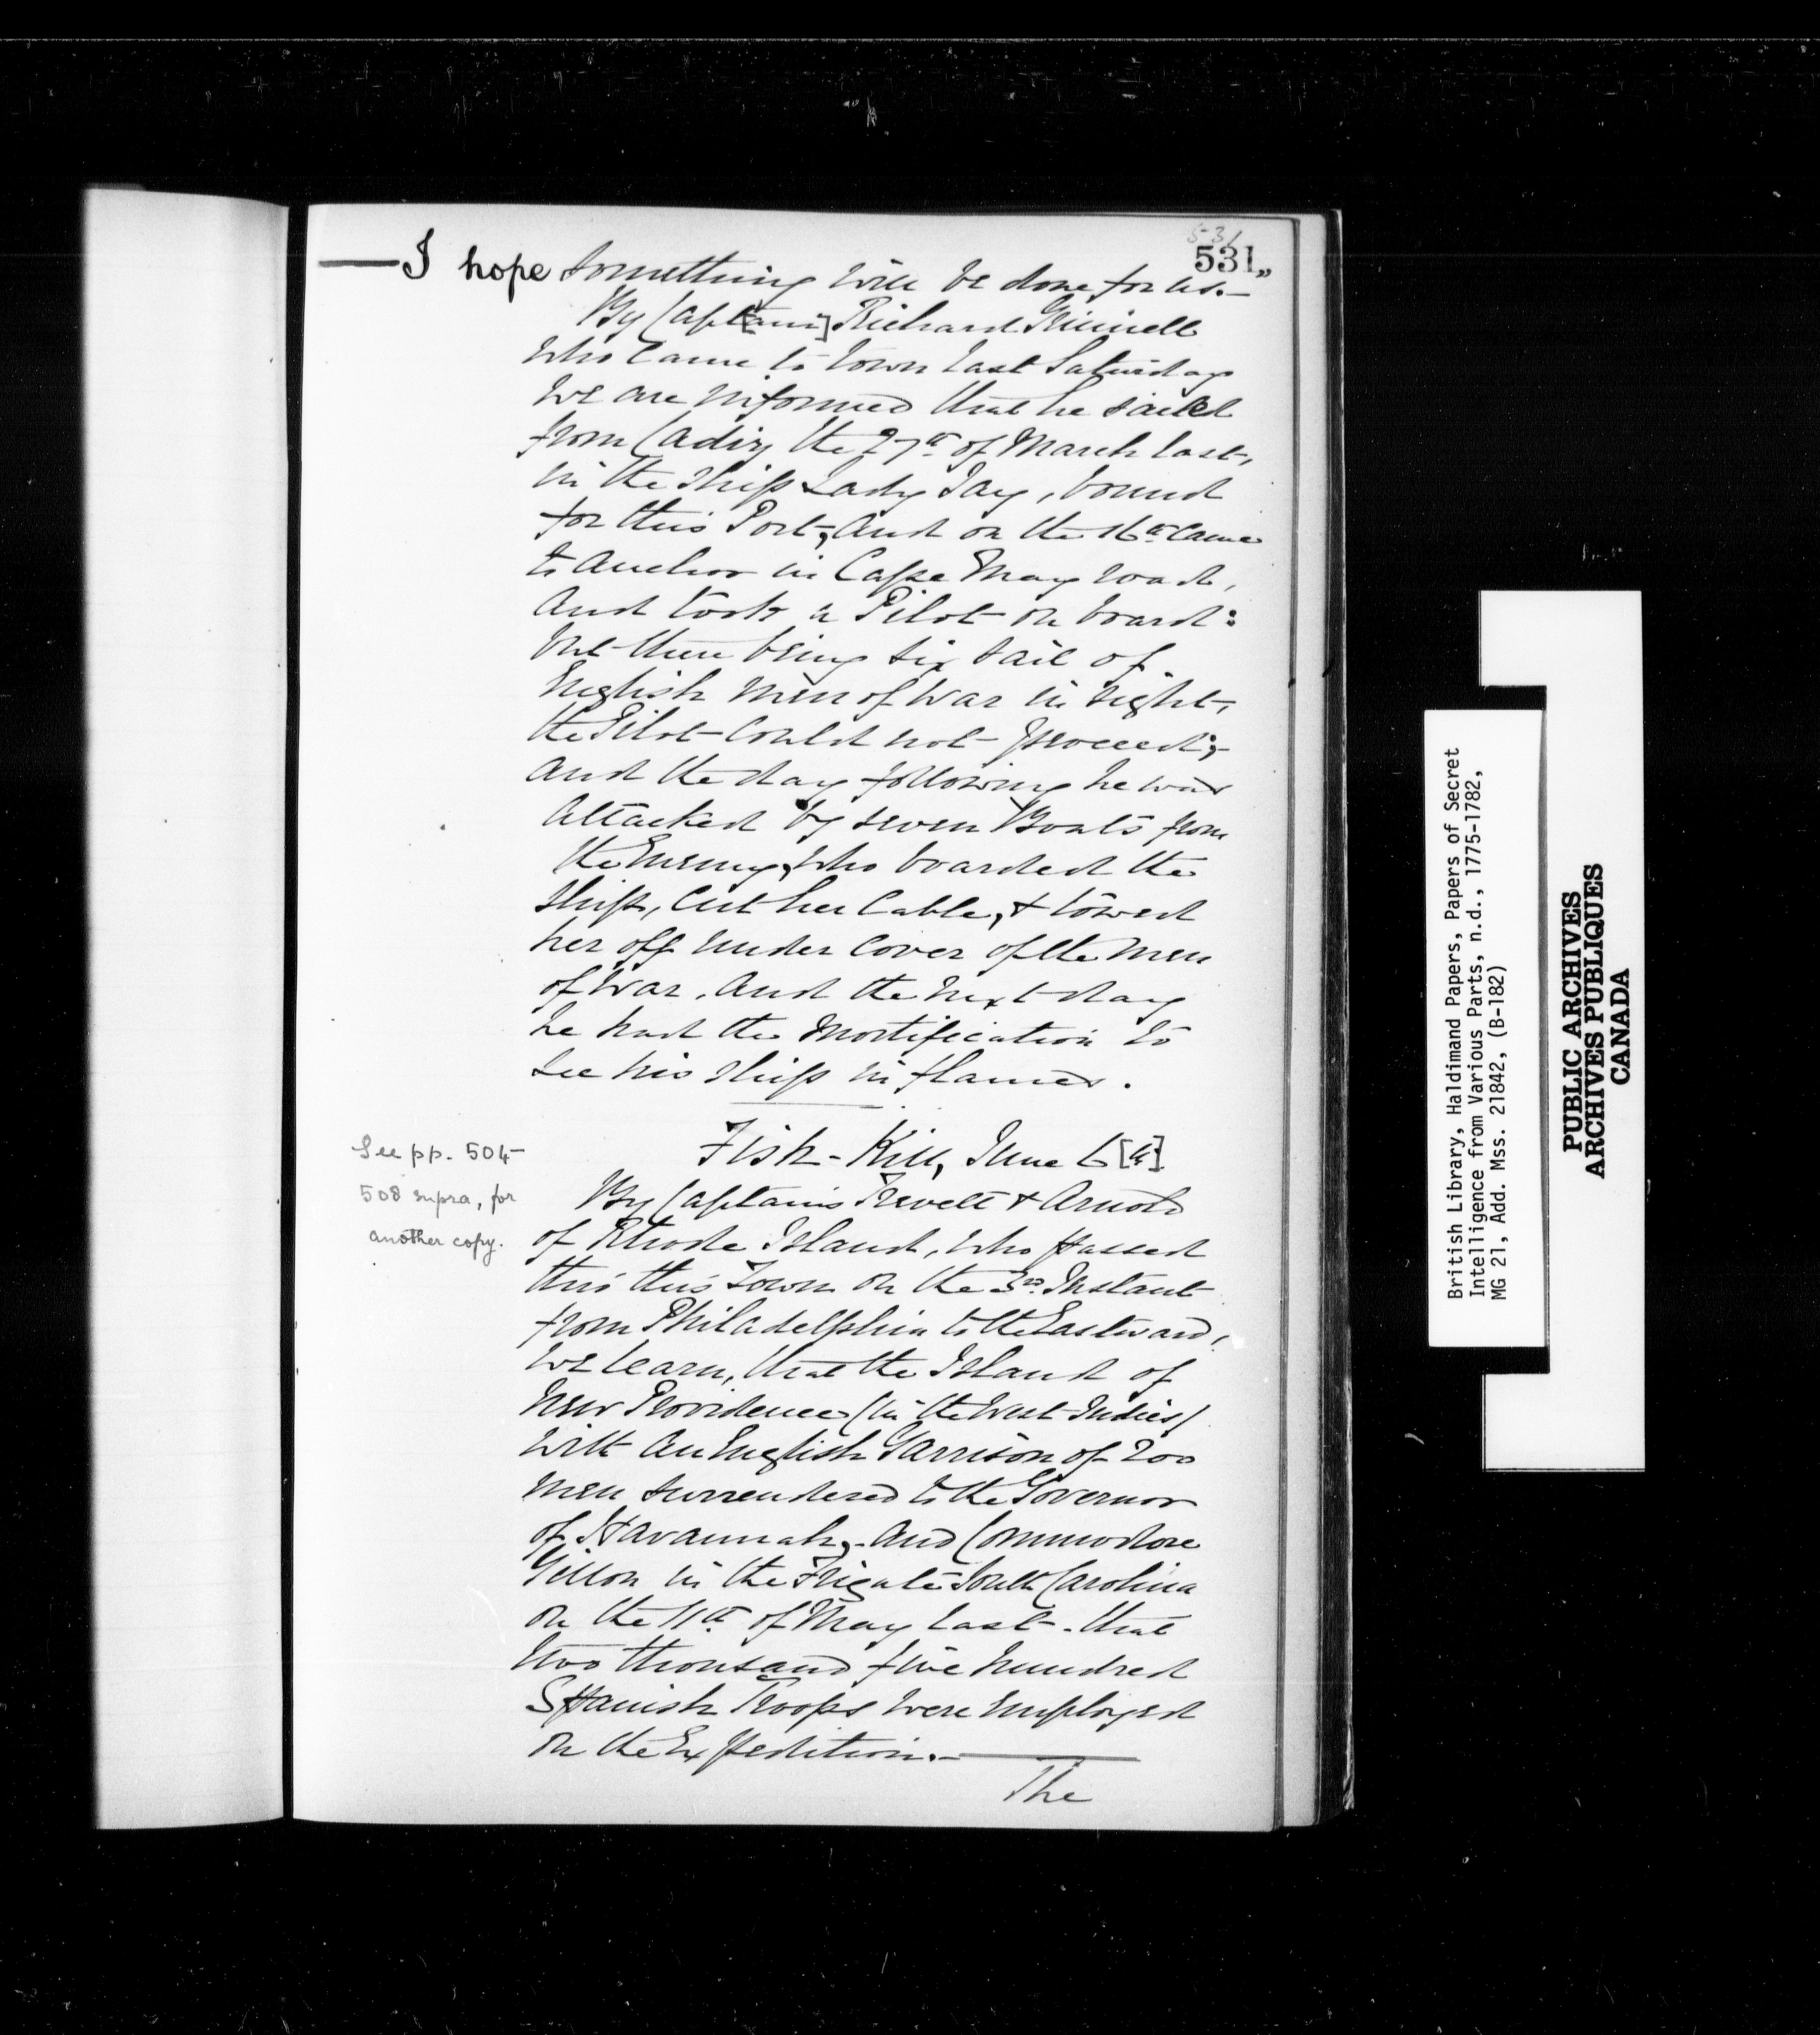 531
531„
—I hope something will be done for us.—
By Capt[ain] Richard Grinnell
who came to town last Saturday
we are informed that he sailed
from Cadiz the 27th of March last,
in the ship Lady Jay, bound
for this Port, and on the 16th came
to anchor in Cape May road,
and took a Pilot on board:
but there being six sail of
English men of War in sight,
the Pilot could not proceed;
and the day following he was
attacked by seven Boats from
the Enemy, who boarded the
ship, cut her cable, & towed
her off under cover of the men
of War. And the next day
he had the mortification to
see his ship in flames.
Fish-Kill, June 6[th].
See pp. 504-
508 supra, for
another copy.
By Captains & Arnold
of Rhode Island, who passed
thro' this Town on the 3rd Instant
from Philadelphia to the Eastward,
we learn, that the Island of
New Providence (in the West Indies)
with an English Garrison of 200
men surrendered to the Governor
of Havannah, and Commodore
Gillon in the Frigate South Carolina
on the 11th of May last. that
two thousand five hundred
Spanish Troops were employed
on the Expedition.—
The
British Library, Haldimand Papers, Papers of Secret
Intelligence from Various Parts, n.d., 1775-1782,
MG 21, Add. Mss. 21842, (B-182)
PUBLIC ARCHIVES
ARCHIVES PUBLIQUES
CANADA